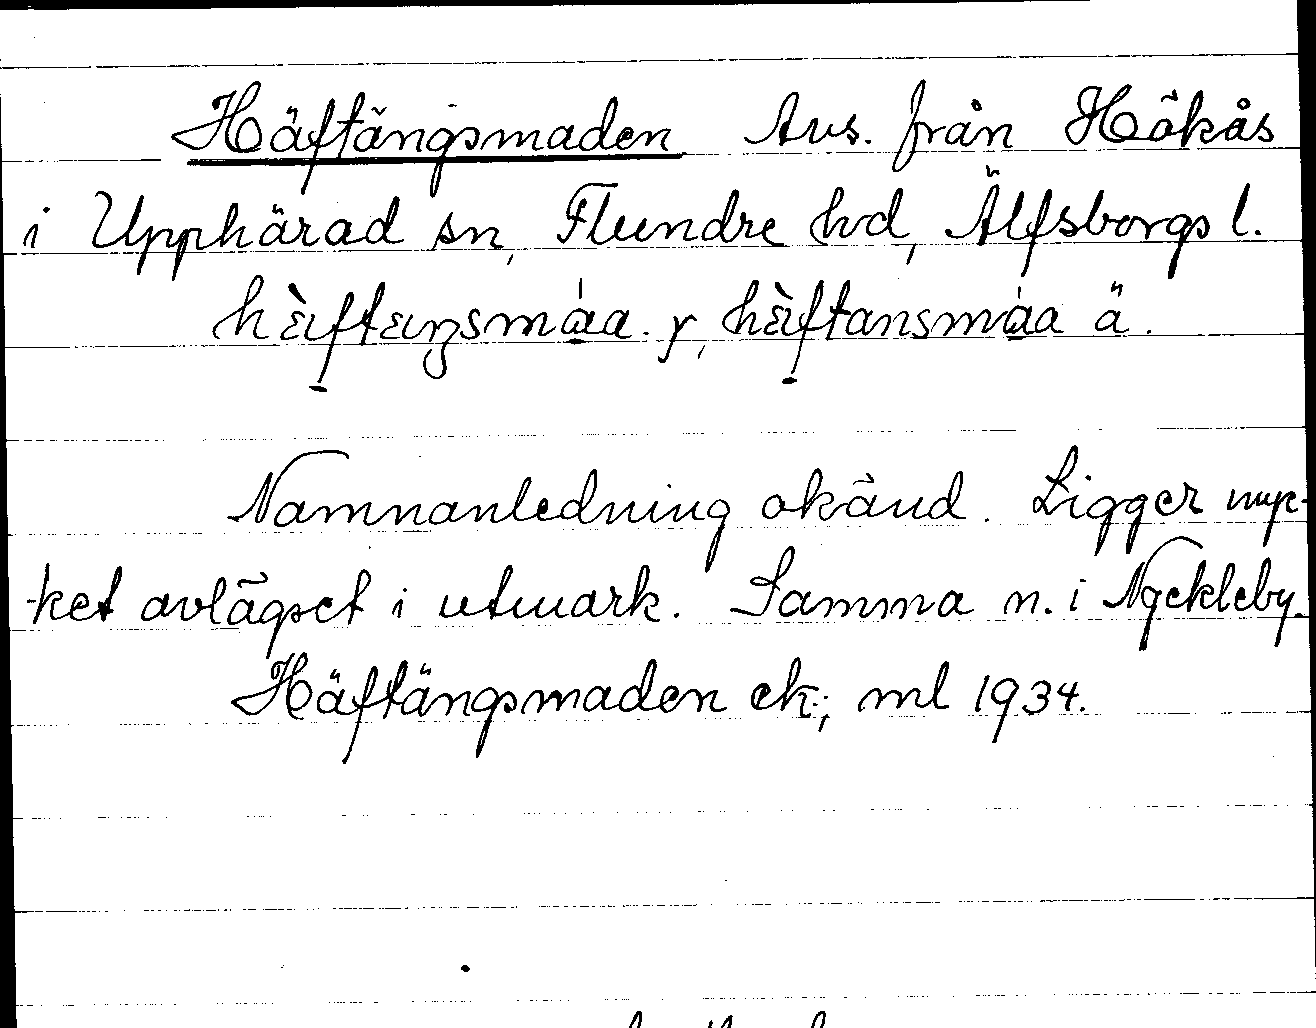 Häftängsmaden Avs. från Hökås
i Upphärad sn, Flundre hd, Älfsborgs l.
hæ̀ftæŋsmáa. y, hæ̀ftansmáa ä.
Namnanledning okänd. Ligger myc-
-ket avlägset i utmark. Samma n. i Nyckleby.
Häftängsmaden ek; ml 1934.